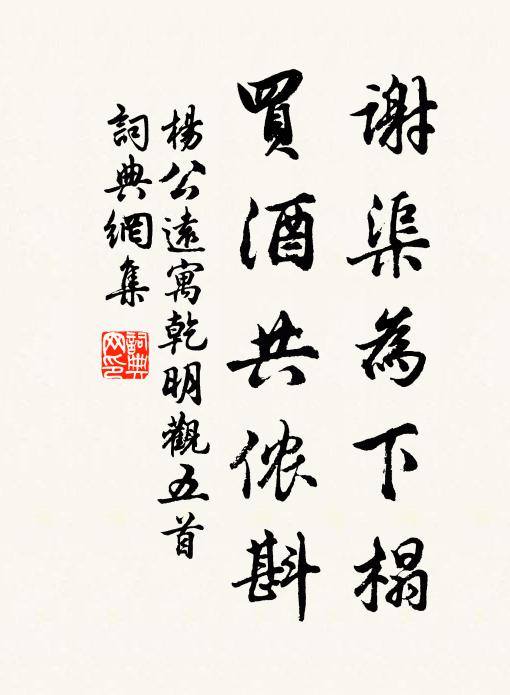 謝渠為下榻
買酒共侬斟
楊公遠寓乾明觀五首
詞典網集
詞典網印